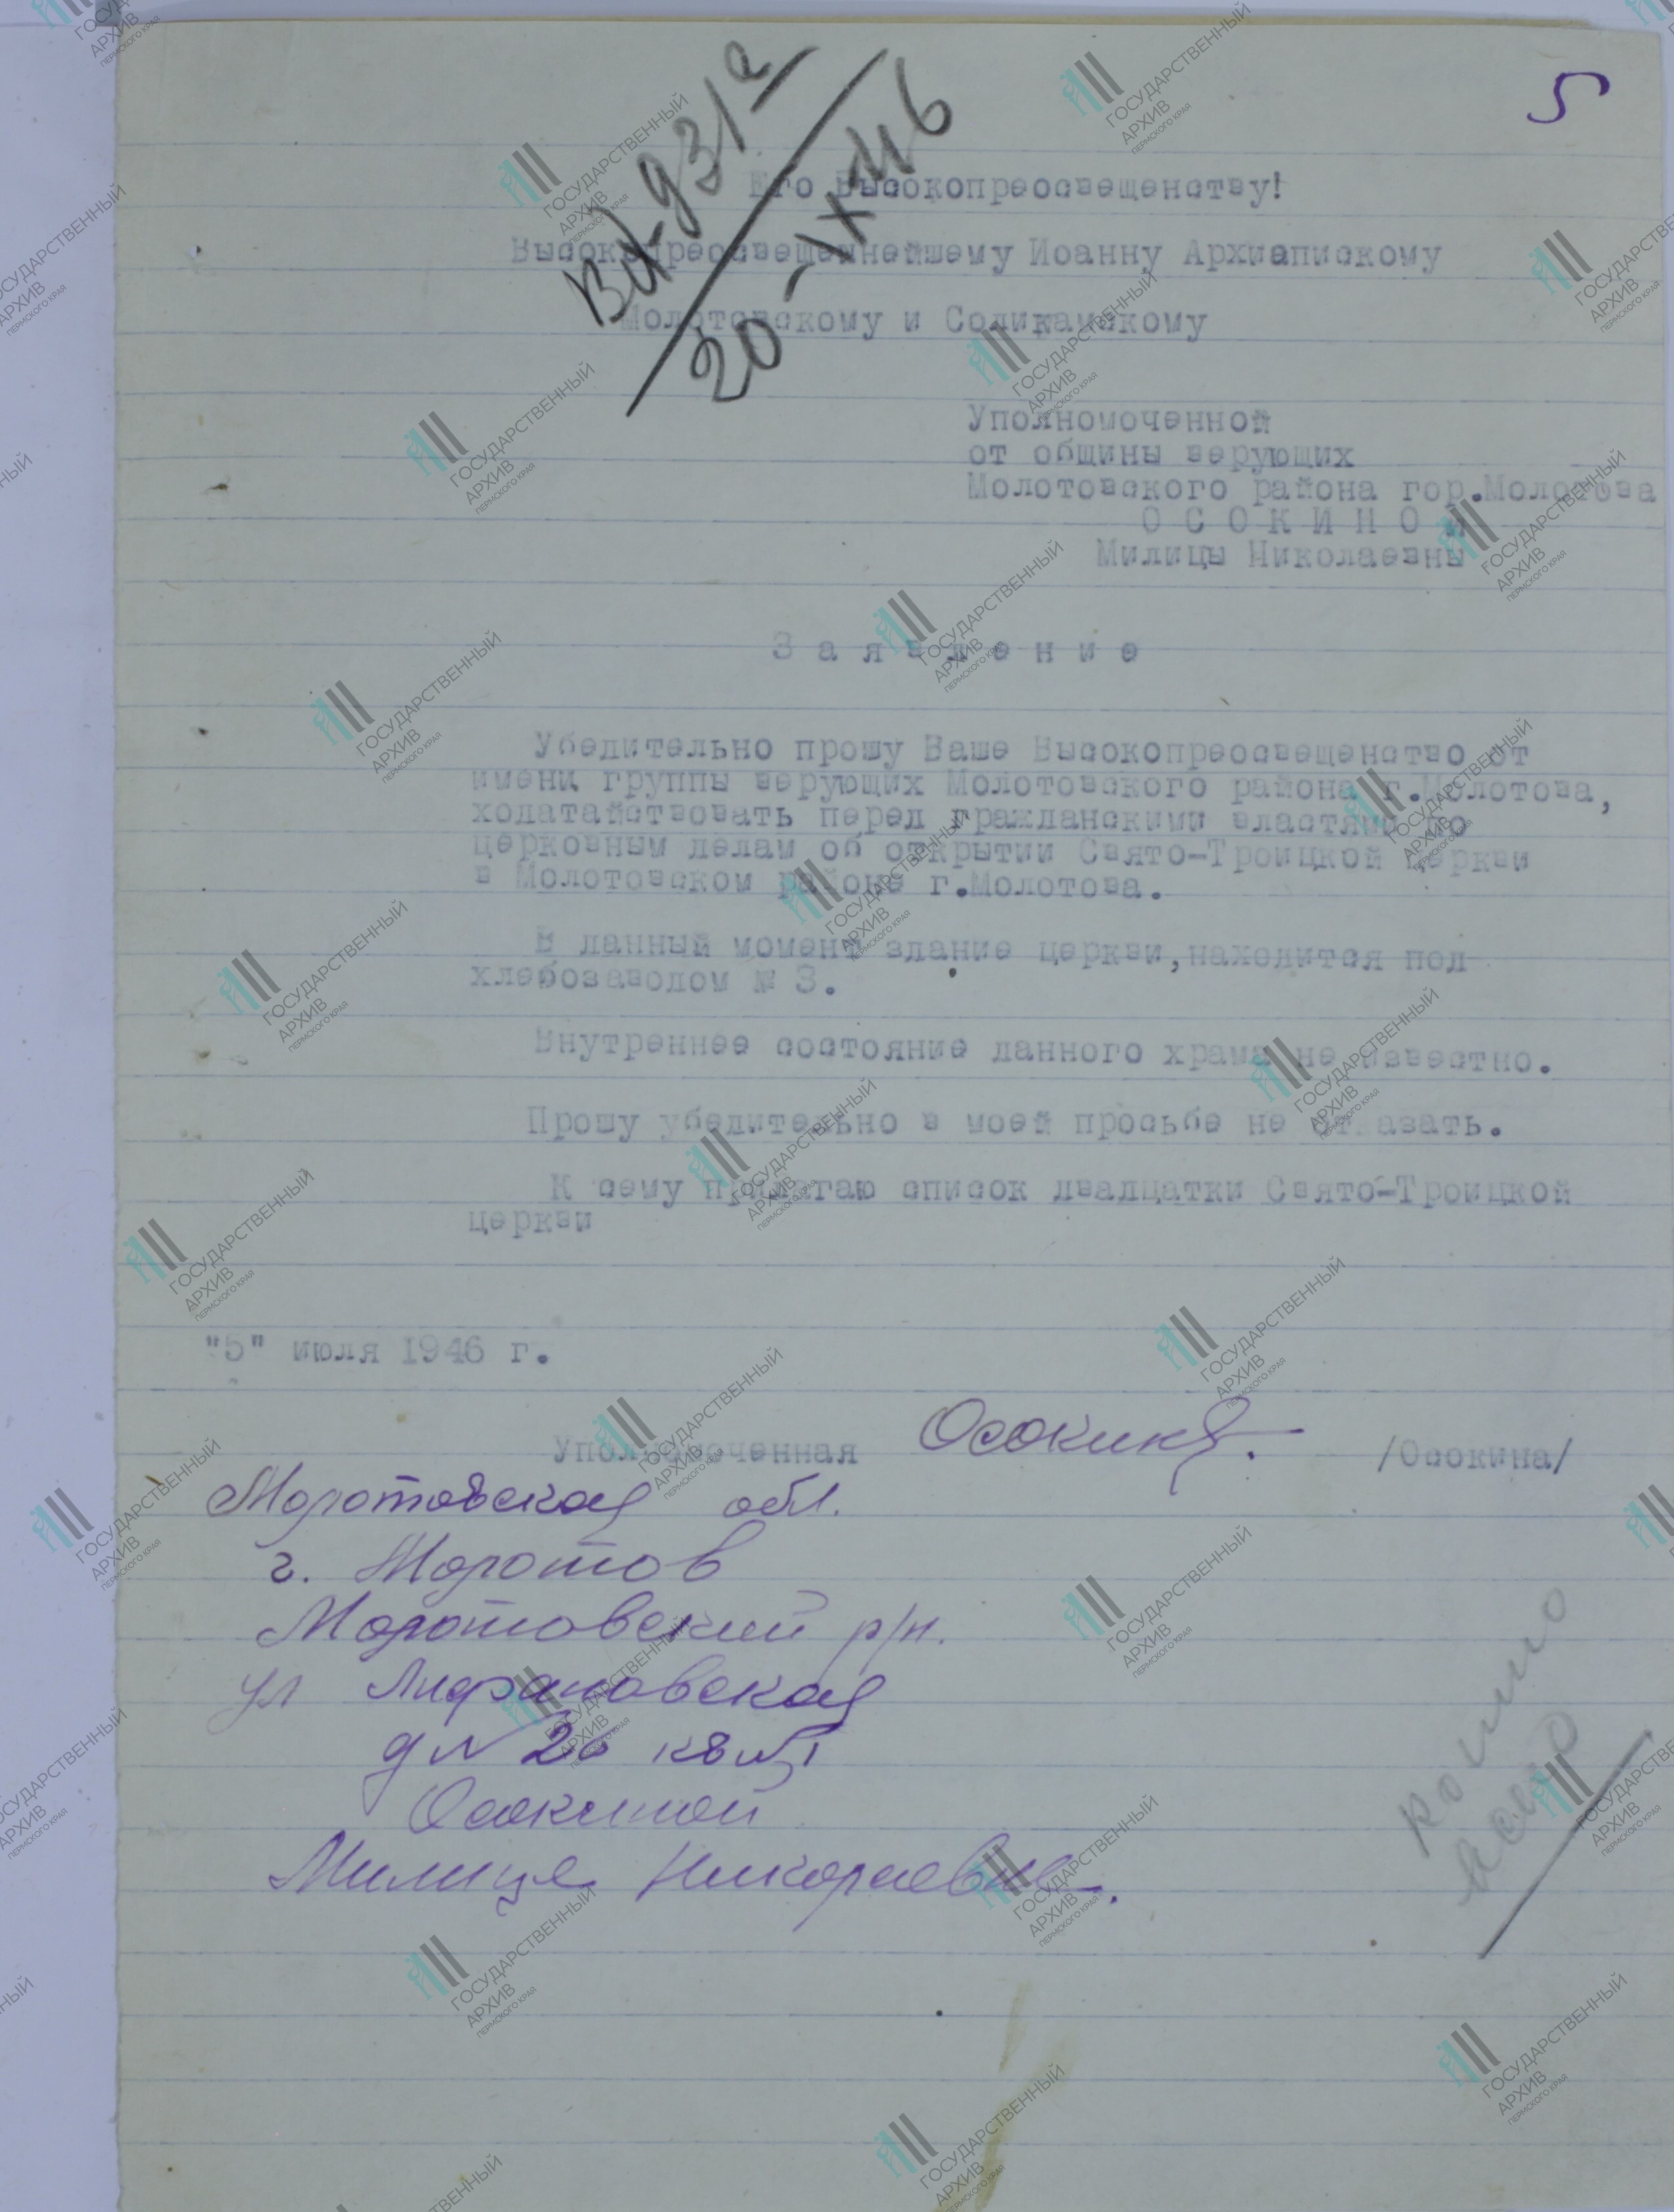 5
Вх 931а
20-IX 46
Его Высокопреосвещенству!
Высокопреосвещеннейшему Иоанну Архиепископу
Молотовскому и Соликамскому
Уполномоченной
от общины верующих
Молотовского района гор.Молотова
О С О К И Н О Й
Милицы Николаевны
З а я в л е н и е
Убедительно прошу Ваше Высокопреосвещенство от
имени группы верующих Молотовского района г.Молотова,
ходатайствовать перед гражданскими властями по
церковным делам об открытии Свято-Троицкой церкви
в Молотовском районе г.Молотова.
В данный момент здание церкви,находится под
хлебозаводом № 3.
Внутреннее состояние данного храма не известно.
Прошу убедительно в моей просьбе не отказать.
К сему прилагаю список двадцатки Свято-Троицкой
церкви
"5" июля 1946 г.
Уполномоченная Осокина. /Осокина/
Молотовская обл.
г. Молотов
Молотовский р/н.
ул
д № 26 кв №1
Осокиной
Милице Николаевне.
ГОСУДАРСТВЕННЫЙ
АРХИВ
ПЕРМСКОГО КРАЯ